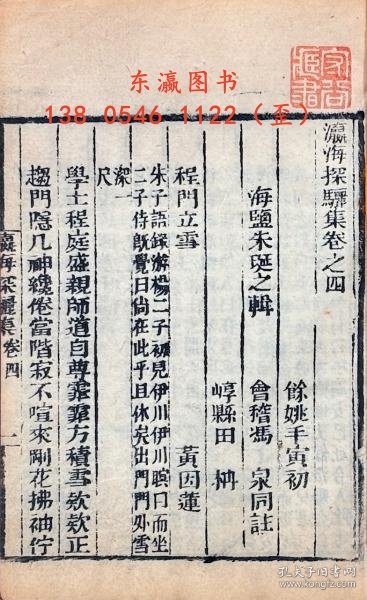 东瀛图书
138 0546 1122（歪）
瀛海探驪集卷之四
餘姚毛寅初
海鹽朱埏之輯　會稽馮　泉同註
嵊縣田　枬
程門立雪　黃因蓮
朱子語錄游楊二子初見伊川伊川瞑目而坐
二子侍旣覺曰尙在此乎且休矣出門門外雪
深一
尺
學士程庭盛親師道自尊霏霏方積雪欸欸正
趨門隱几神纔倦當階寂不喧來剛花拂袖佇
瀛海探驪集卷四　一
孔夫子旧书网